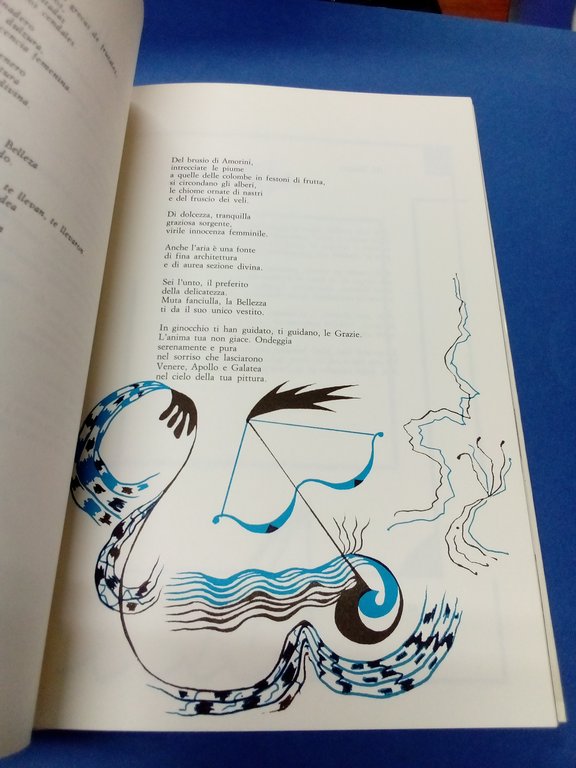 gracias de frutales,
nadero
dulzura
cencia femenina.
enero
tura
divina.
Belleza
do.
te llevan, te llevaron,
dea
a
Del brusio di Amorini,
intrecciate le piume
a quelle delle colombe in festoni di frutta,
si circondano gli alberi,
le chiome ornate di nastri
e del fruscio dei veli.
Di dolcezza, tranquilla
graziosa sorgente,
virile innocenza femminile.
Anche l'aria è una fonte
di fina architettura
e di aurea sezione divina.
Sei l'unto, il preferito
della delicatezza.
Muta fanciulla, la Bellezza
ti da il suo unico vestito.
In ginocchio ti han guidato, ti guidano, le Grazie.
L'anima tua non giace. Ondeggia
serenamente e pura
nel sorriso che lasciarono
Venere, Apollo e Galatea
nel cielo della tua pittura.